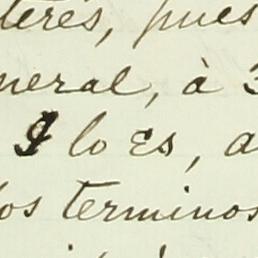 terés, pues
neral, à 3
lo es, a
los terminos